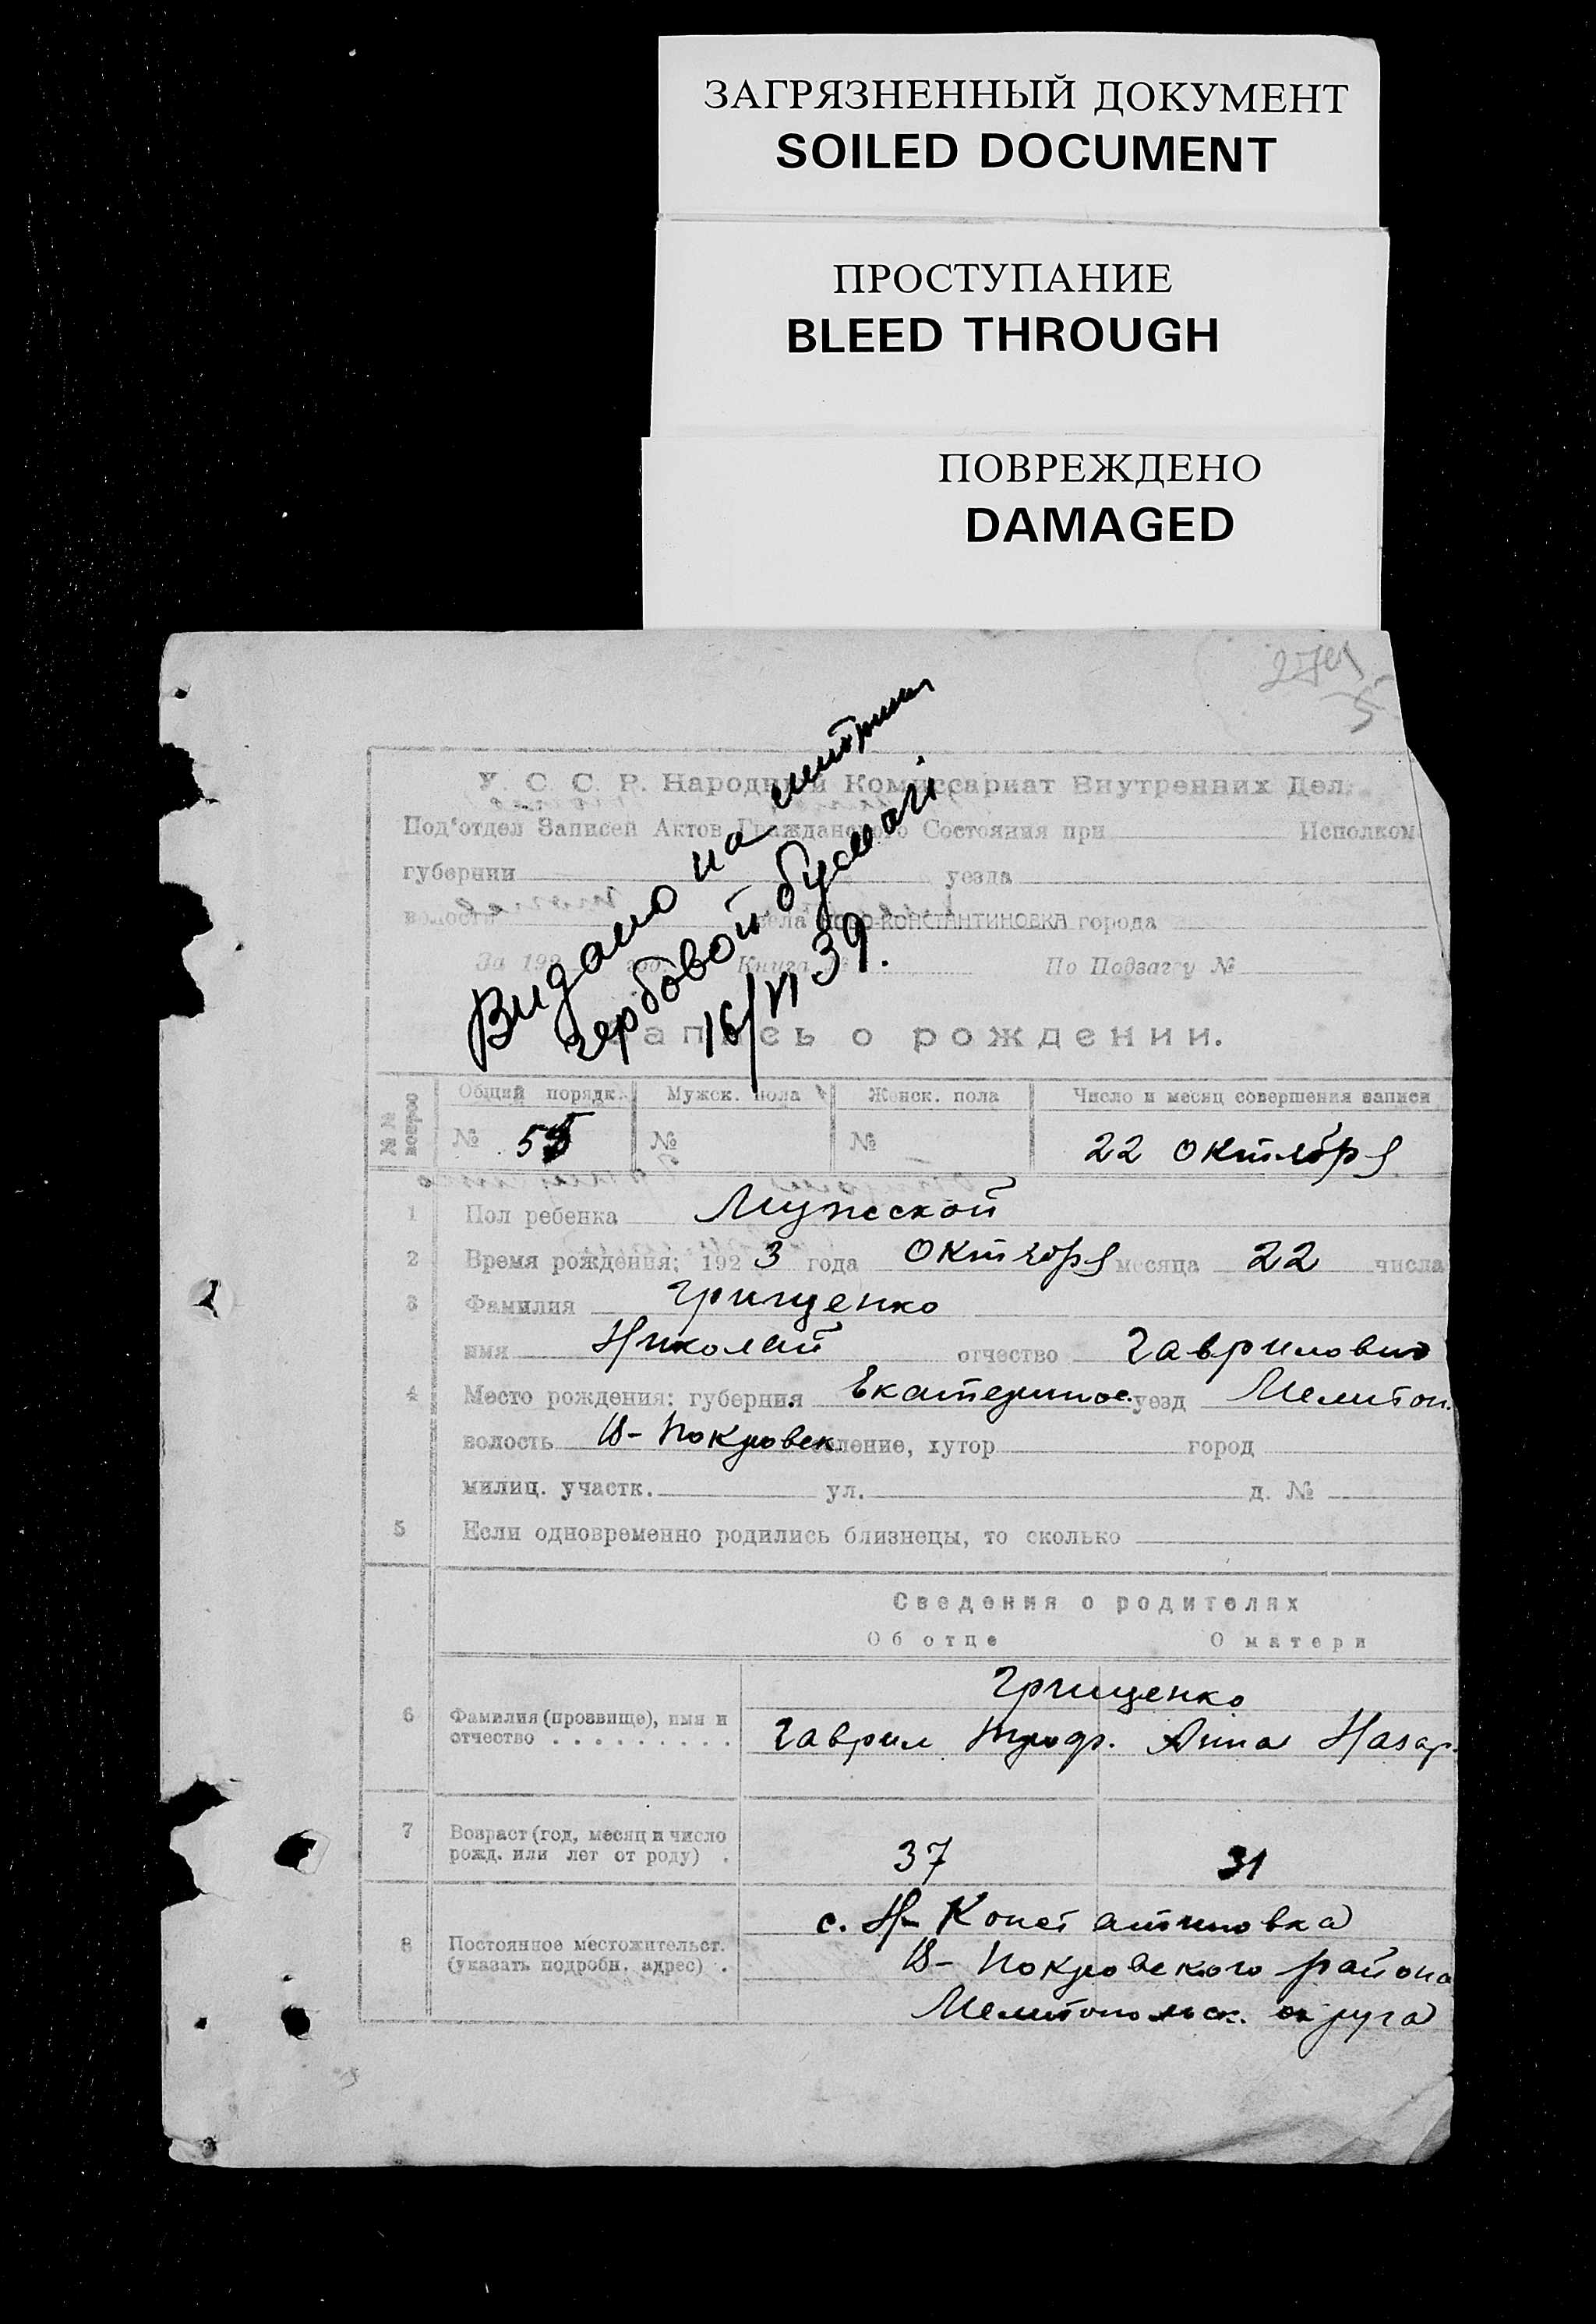 ЗАГРЯЗНЕННЫЙ ДОКУМЕНТ
SOILED DOCUMENT
ПРОСТУПАНИЕ
BLEED THROUGH
ПОВРЕЖДЕНО
DAMAGED
Видано на
гербовой бумагі
16/VI 39.
У. С. С. Р. Народный Комиссариат Внутренних Дел.
Под'отдел Записей Актов Гражданского Состояния при Исполком
губернии уезда
волости села НОВО-КОНСТАНТИНОВКА города
За 192 год. Книга № По Подзагсу №
Запись о рождении.
№№ вопрос Общий порядк. Мужск. пола Женск. пола Число и месяц совершения записи
№ 55 № № 22 октября
1 Пол ребенка Мужеской
2 Время рождения; 192 3 года октября месяца 22 числа
3 Фамилия Грищенко
имя Николай отчество Гаврилович
4 Место рождения: губерния Екатеринос. уезд Мелитоп.
волость В-Покровск селение, хутор город
милиц. участк. ул. д. №
5 Если одновременно родились близнецы, то сколько
Сведения о родителях
Об отце О матери
Грищенко
6 Фамилия (прозвище), имя и
отчество . . . . . . . . . Гаврил Троф. Анна Назар.
7 Возраст (год, месяц и число
рожд. или лет от роду) . 37 31
с. Н-Констатиновка
8 Постоянное местожительст.
(указать подробн. адрес) . В-Покровского района
Мелитопольск. округа